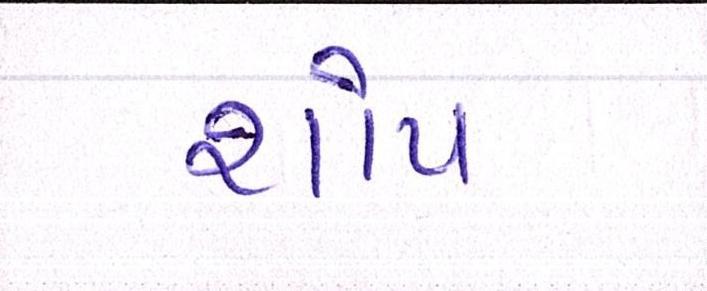 શોપ